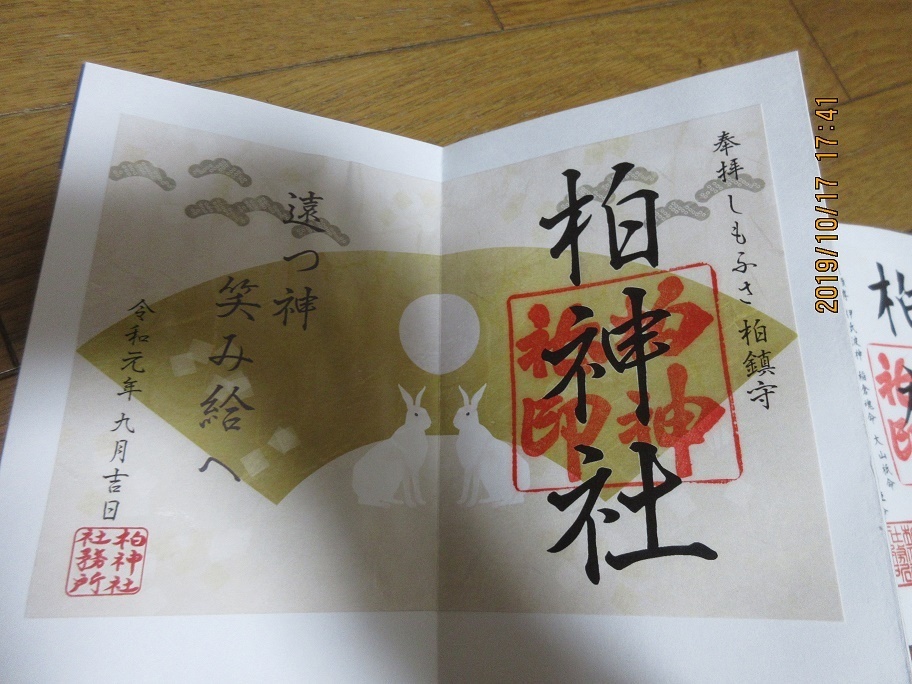 奉拝 しもふさ 柏鎮守
柏神社
柏神
社印
遠つ神
笑み給へ
令和元年 九月吉日
柏神社
社務所
2019/10/17 17:41